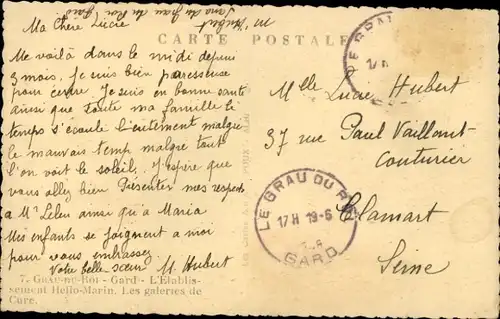 Mme Hubert
Sana du Grau du Roi Gard
CARTE POSTALE
Ma Chère Lucie
Me voilà dans le midi depui
3 mois, Je suis bien paresseuse
pour écrire. Je suis en bonne santé
ainsi que toute ma famille le
temps s'écoule lentement malgré
le mauvais temp malgré tout
l'on voit le soleil. J'espère que
vous allez bien Présenter mes respects
a Mr Leleu ainsi qu'a Maria
Mes enfants se joignent a moi
pour vous embrasser
Votre belle sœur M. Hubert
7. GRAU-DU-ROI - Gard - L'Etablis-
sement Hélio-Marin. Les galeries de
Cure.
Melle Lucie Hubert
37 rue Paul Vaillant-
Couturier
Clamart
Seine
LE GRAU DU R
17H 19-6
GARD
LE GRAU